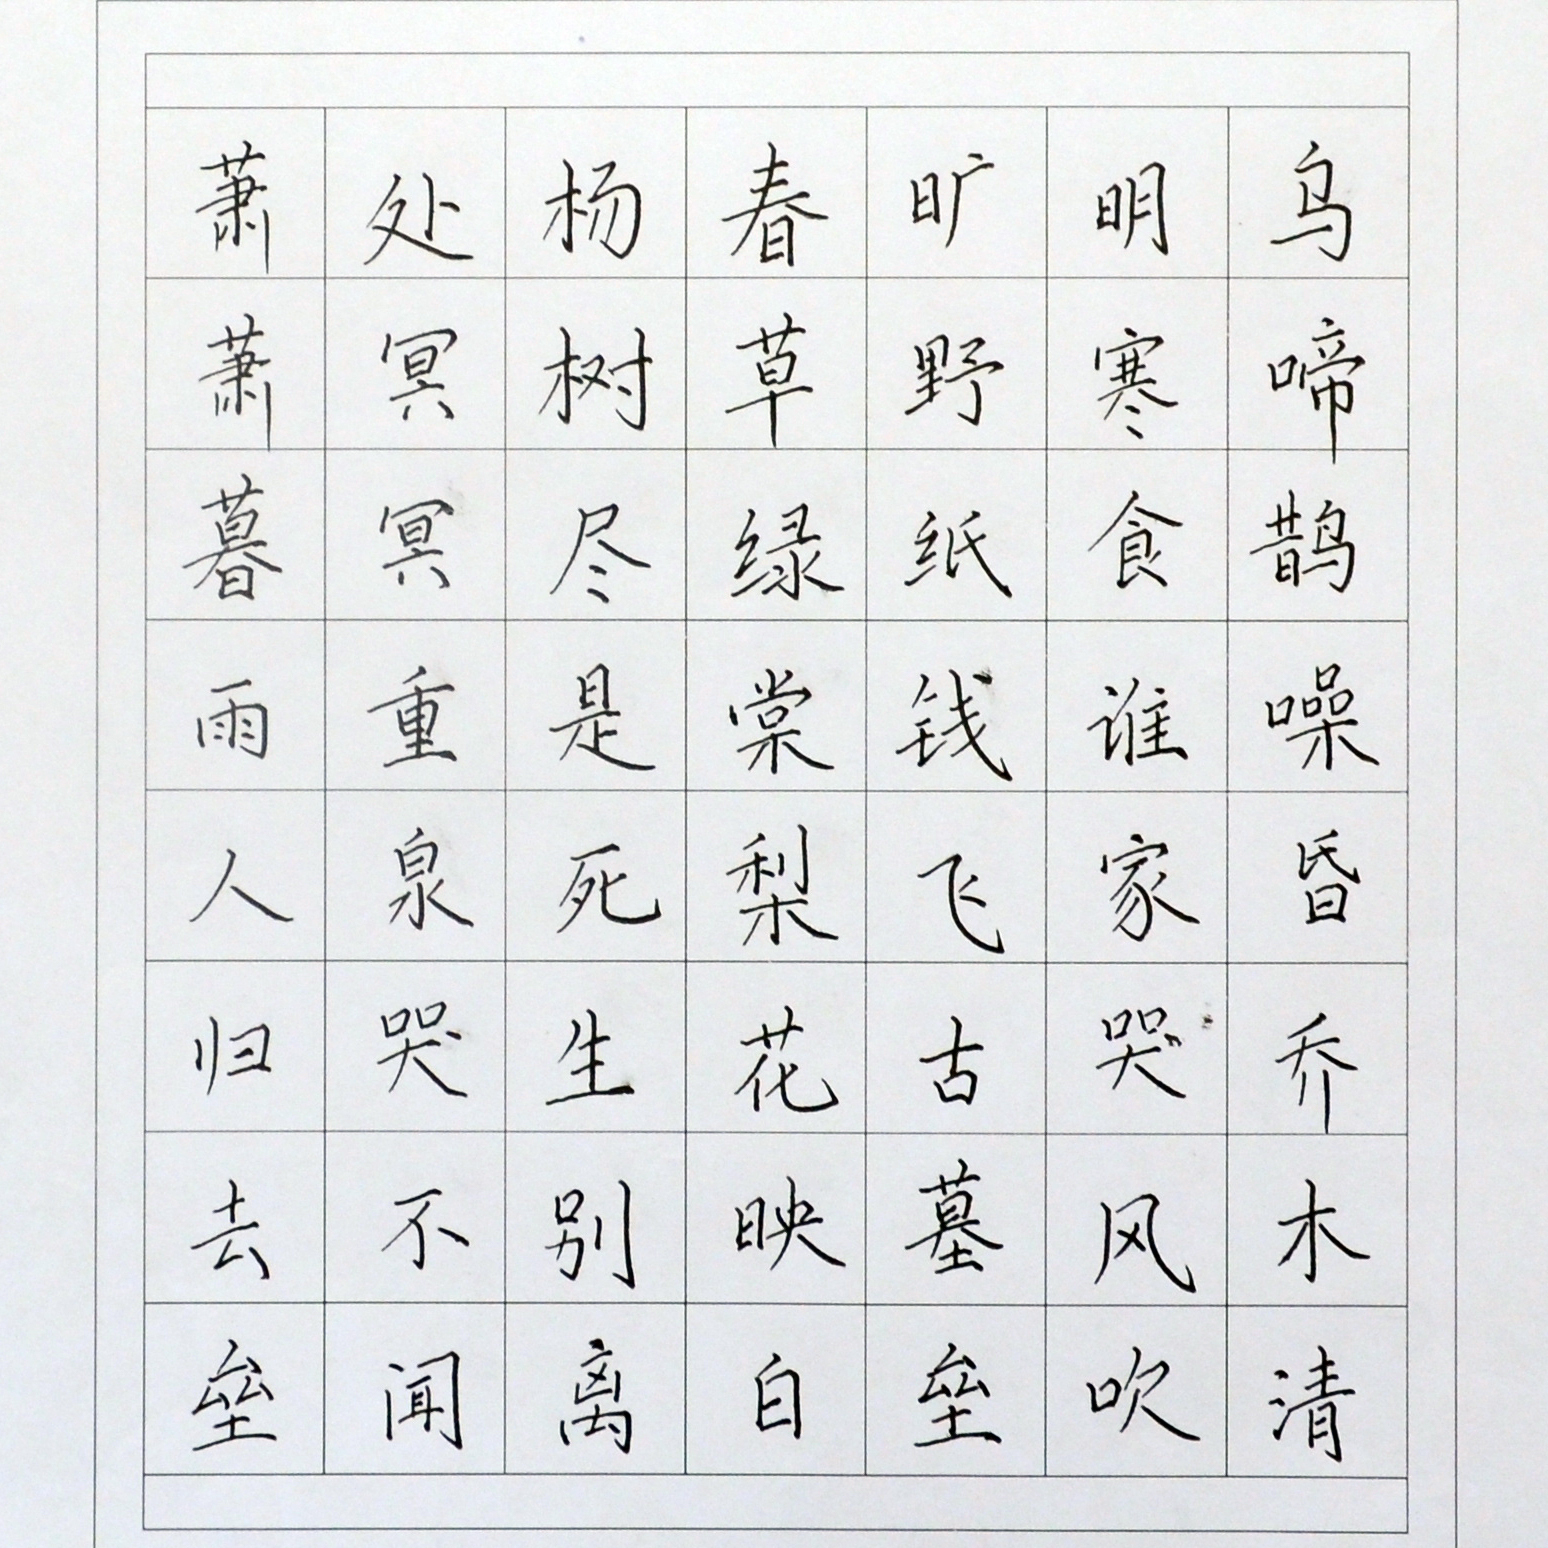 乌啼鹊噪昏乔木清
明寒食谁家哭风吹
旷野纸钱飞古墓垒
春草绿棠梨花映白
杨树尽是死生别离
处冥冥重泉哭不闻
萧萧暮雨人归去垒